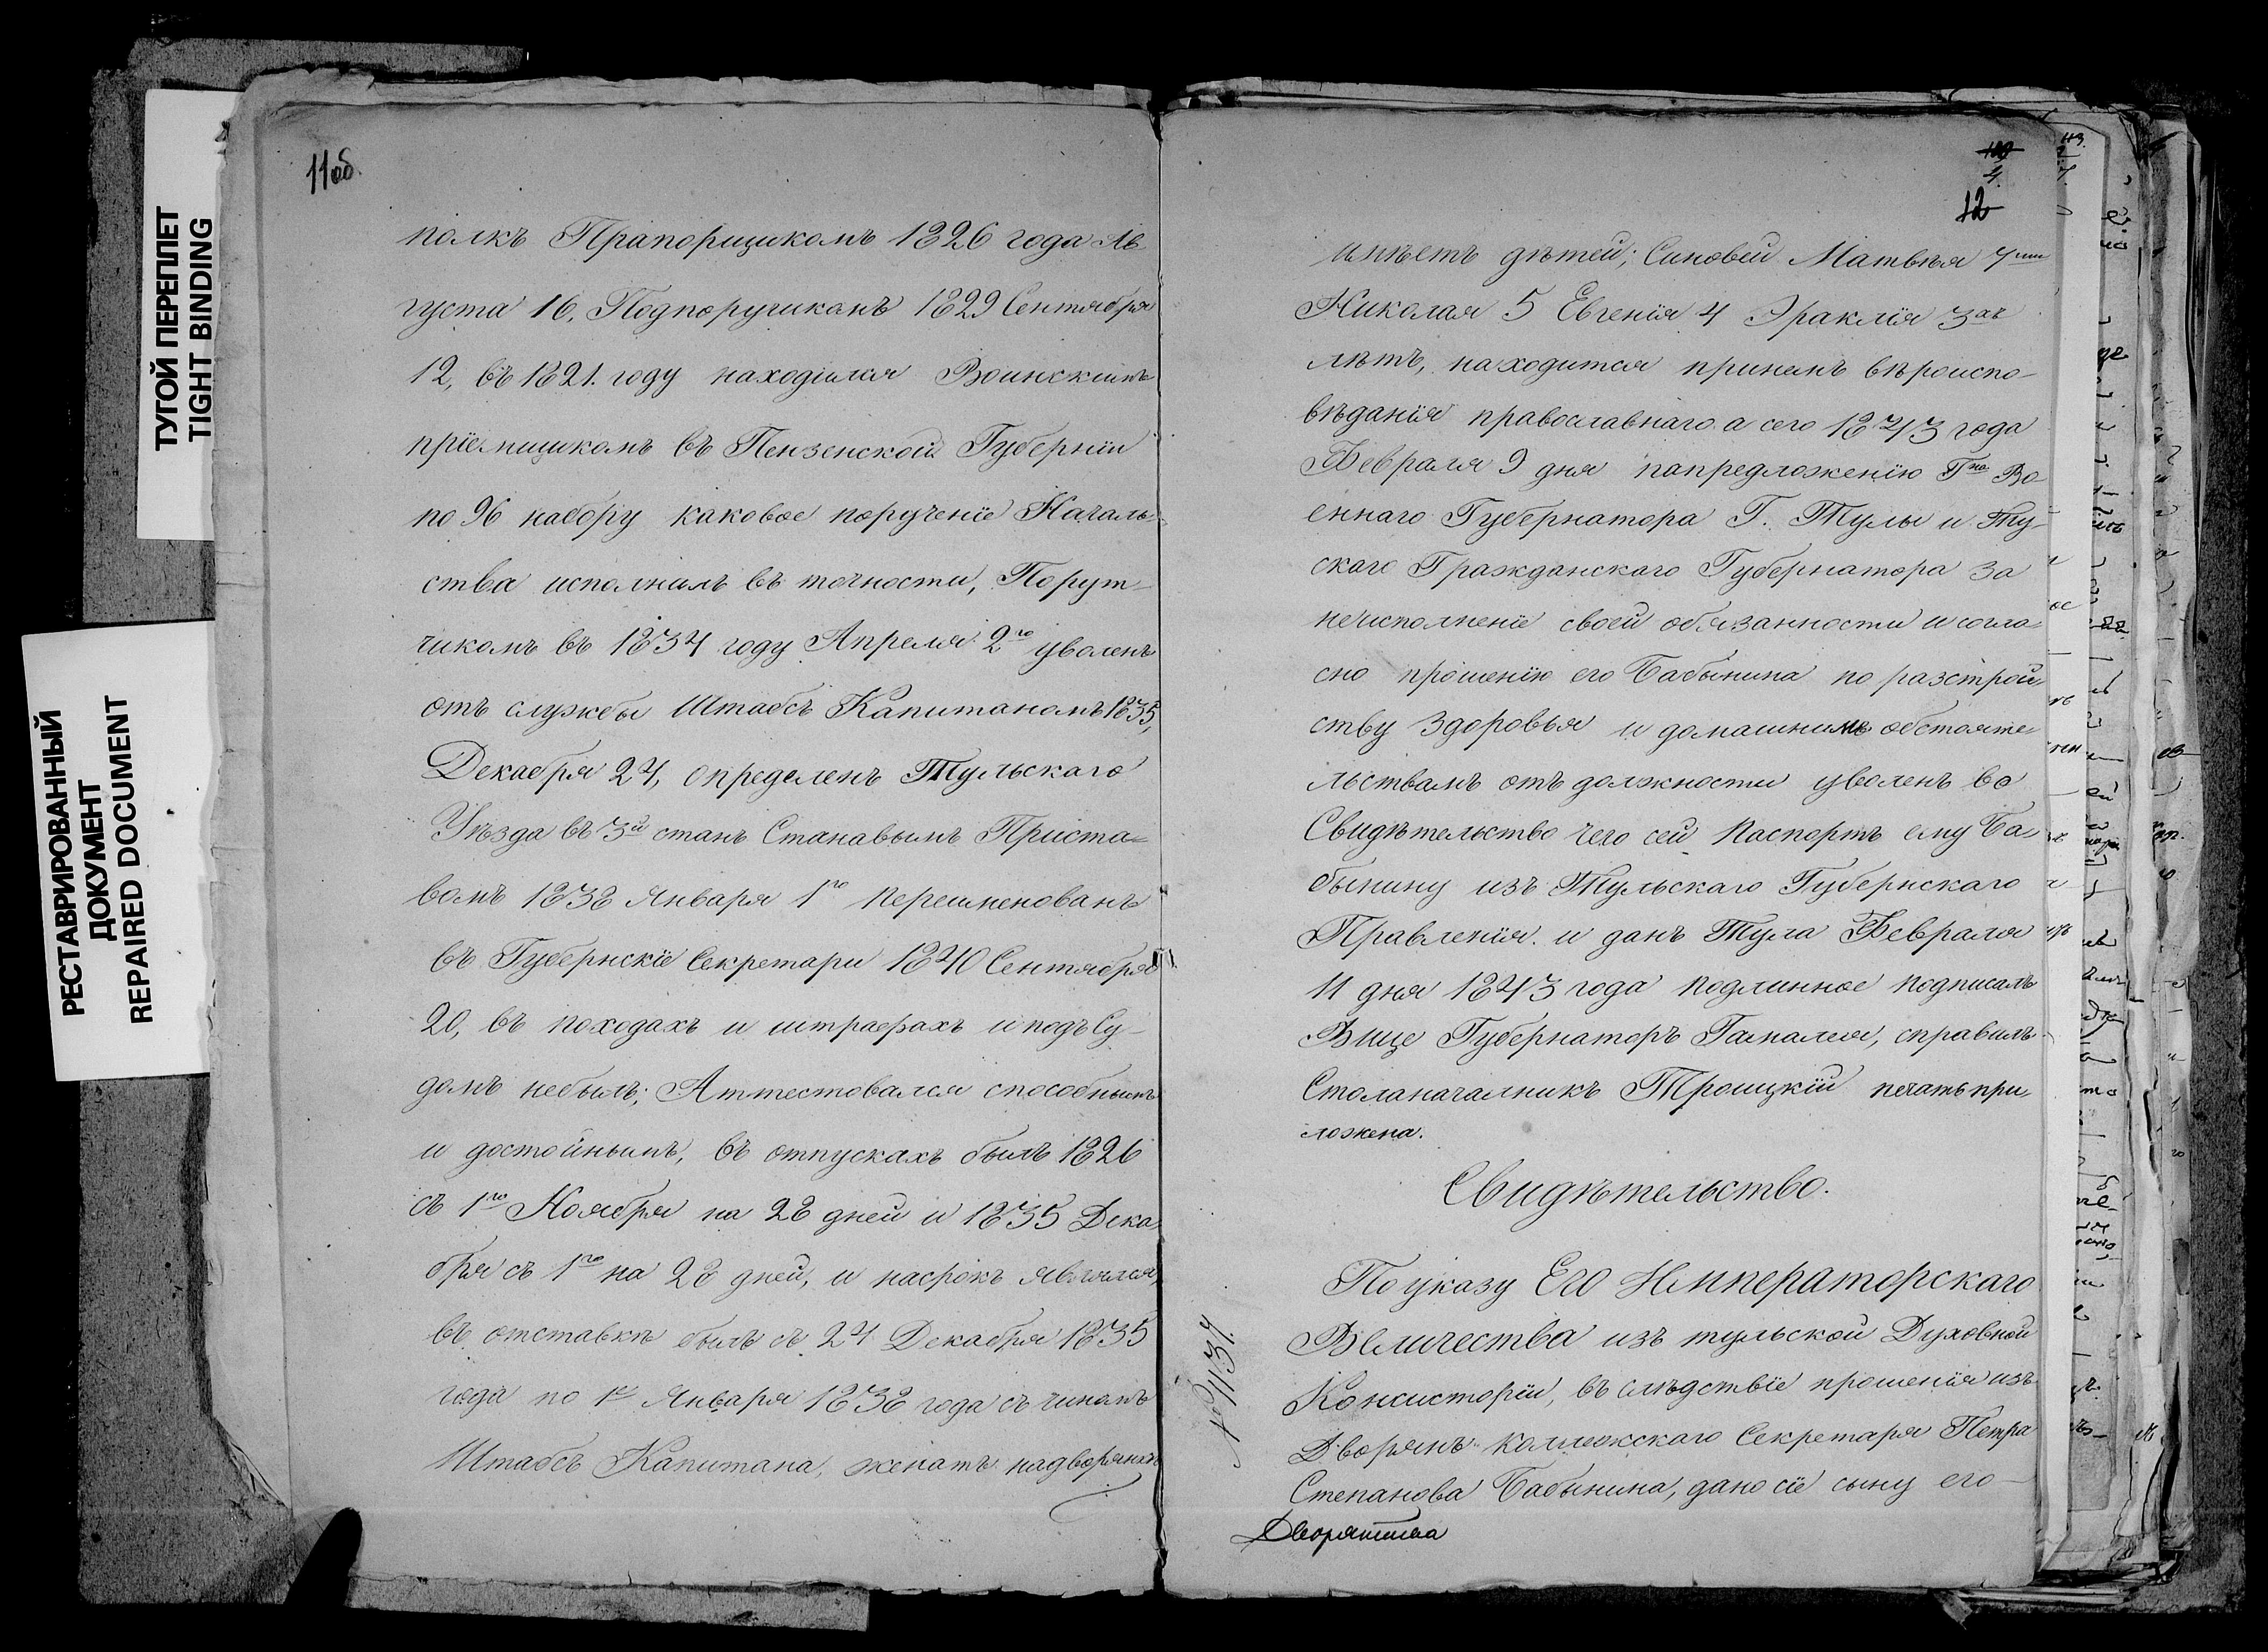 ТУГОЙ ПЕРЕПЛЕТ
TIGHT BINDING
РЕСТАВРИРОВАННЫЙ
ДОКУМЕНТ
REPAIRED DOCUMENT
11об.
полкъ Прапорщикомъ 1826 года Ав
густа 16, Подпоручикомъ 1829 Сентября
12, въ 1821. году находился Воинскимъ
пріемщикомъ въ Пензенской Губерніи
по 96 набору каковое порученіе Началь-
ства исполнилъ въ точности, Порут-
чикомъ въ 1834 году Апреля 2го уволенъ
отъ службы Штабсъ Капитаномъ 1835,
Декабря 24, определенъ Тульскаго
Уѣзда въ 3й станъ Становымъ Приста=
вомъ 1838 Января 1го переименованъ
въ Губернскіе Секретари 1840 Сентября
20, въ походахъ и штрафахъ и подъ Су-
домъ небылъ; Аттестовался способнымъ
и достойнымъ, въ отпускахъ былъ 1826
съ 1го Ноября на 28 дней и 1835 Дека
бря съ 1го на 28 дней, и насрокъ явился,
въ отставкѣ былъ съ 24 Декабря 1835
года по 1е Января 1838 года съ чиномъ
Штабсъ Капитана, женатъ надворянкѣ
12
имѣетъ дѣтей; Сыновей Матвѣя 7ми
Николая 5 Евгенія 4 Ираклія 3хъ
лѣтъ, находится принемъ вѣроиспо-
вѣданія православнаго а сего 1843 года
Февраля 9 дня попредложенію Гна Во
еннаго Губернатора Г. Тулы и Ту-
скаго Гражданскаго Губернатора за
неисполненіе своей обязанности и согла-
сно прошенію его Бабынина по разстрой-
ству здоровья и домашнимъ обстояте
льствамъ отъ должности уволенъ во
Свидѣтельство чего сей Паспортъ ему Ба-
бынину изъ Тульскаго Губернскаго
Правленія. и данъ Тула Февраля
11 дня 1843 года подлинное подписалъ
Вице Губернаторъ Гамалея, справилъ
Столаначалникъ Троицкій печать при-
ложена.
Свидѣтельство.
По указу Его Императорскаго
Величества изъ тульской Духовной
Консисторіи, въ слѣдствіе прошенія изъ
Дворянъ коллежскаго Секретаря Петра
Степанова Бабынина, дано сіе сыну его—
Дворянина
№ 1137.